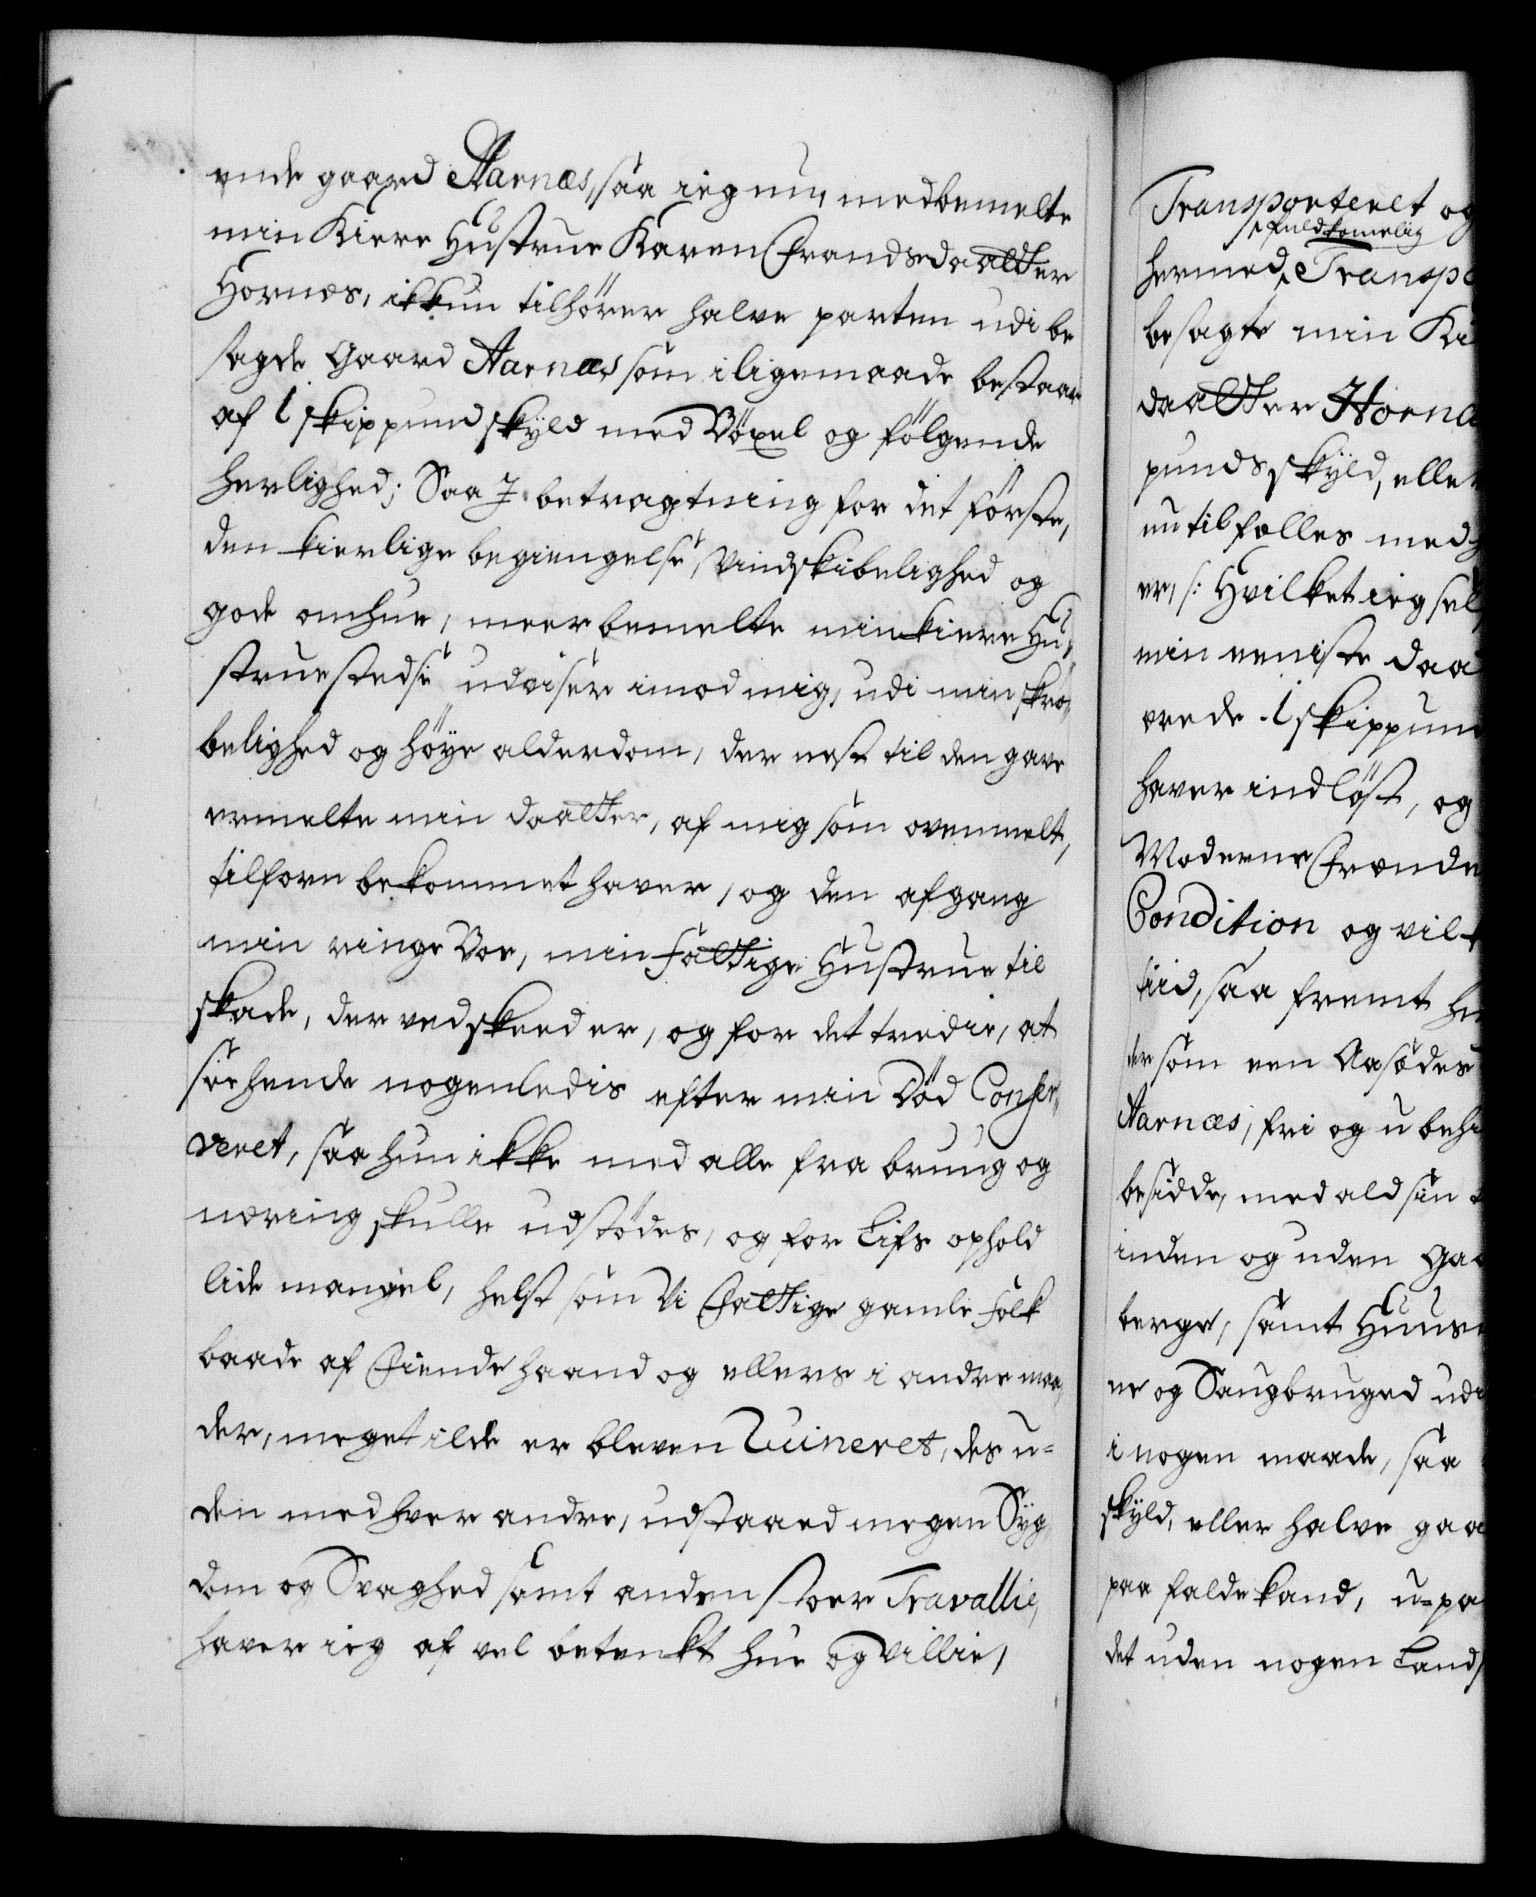 ende gaard Aarnæs, saa ieg nu, med bemelte
min Kiere Hustrue Karen Frandsdaatter
Hornæs, ikkun tilhører halve parten udi be
sagde Gaard Aarnæs som i ligemaade bestaar
af 1 skippund skyld med Böxel og følgende
herlighed; Saa J betragtning for det første,
den kierlige begiengelse, Vindskibelighed og
gode omhue, meerbemelte min kiere Hu,
strue stedse udviser imod mig, udi min skrø,
belighed og høye alderdom, der nest til den gave
ermelte min daatter, af mig som ovenmelt,
tilforn bekommet haver, og den afgang
min ringe Boe, min fattige Hustrue til
skade, der ved skeed er, og for det tredie, at
see hende nogenledis efter min Död Conser,
veret, saa hun ikke med alle fra brug og
næring skulle udstødes, og for Lifs ophold
lide mangel, helst som Vi Fattige gamle folk
baade af Fiende haand og ellers i andre maa,
der, meget ilde er bleven Ruineret, des u-
den med hver andre, udstaaed megen Syg,
dom og Svaghed samt anden stoer Travallie,
haver ieg af vel betenkt hue og Villie,
Transporteret og
fuldkomelig
hermed Transpo
besagte min Ki
daatter Horna
punds skyld, eller
nu tilfælles med
er, /: Hvilket ieg sel
min eeniste daa
ærede 1 skippun
haver indløst, og
Moderne Frænde
Condition og vil
tiid, saa fremt h
der som een Aasædes
Aarnæs, fri og ubehi
besidde, med ald sin
inden og uden Gaa
berge, samt Huuse
ne og Saugbruged udi
i nogen maade, saa
skyld, eller halve gaa
paa falde kand, u-pa
det uden nogen Lands